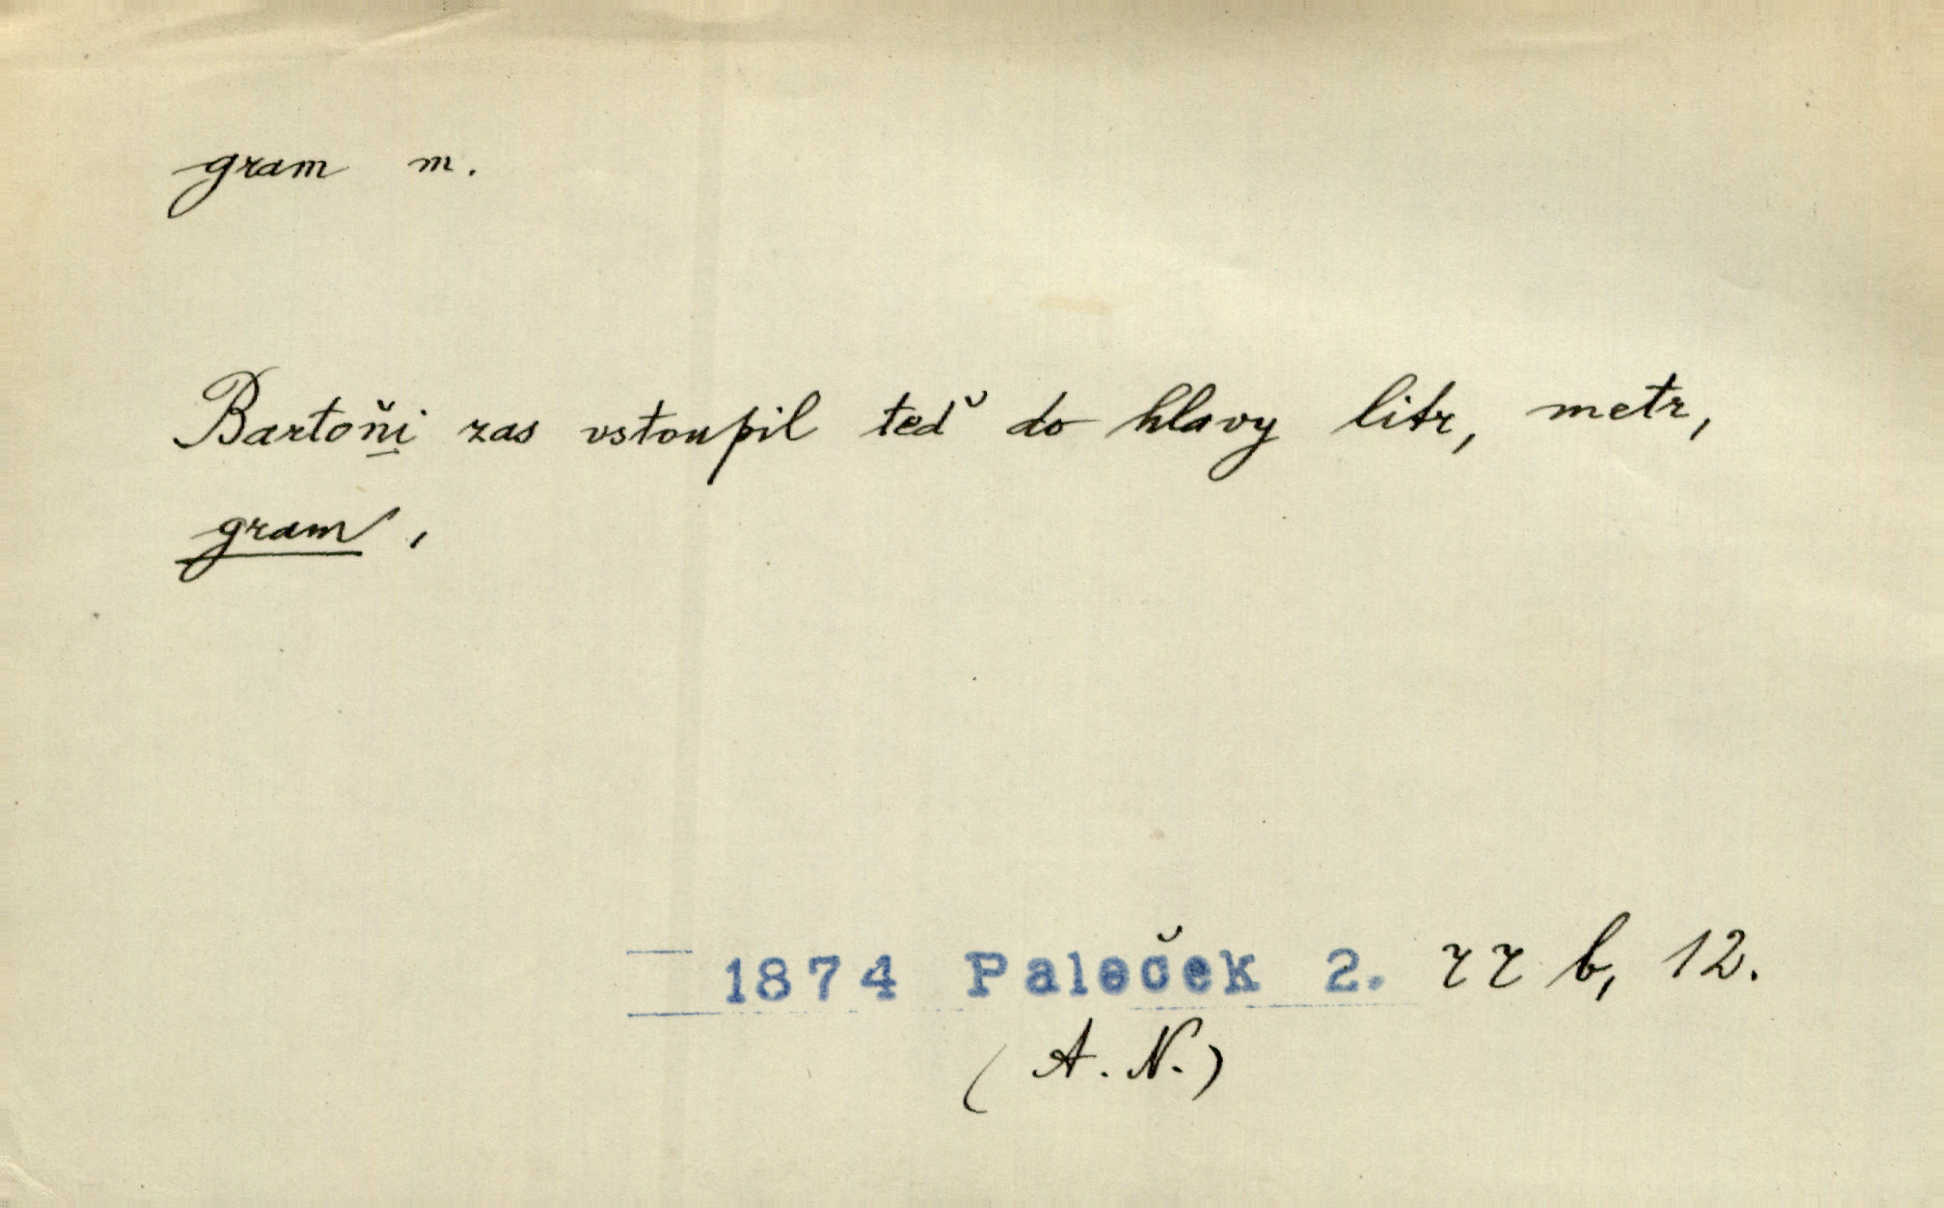 gram m.
Bartoňi zas vstoupil teď do hlavy litr, metr,
gram,
1874 Paleček 2. 77 b, 12.
(A. N.)